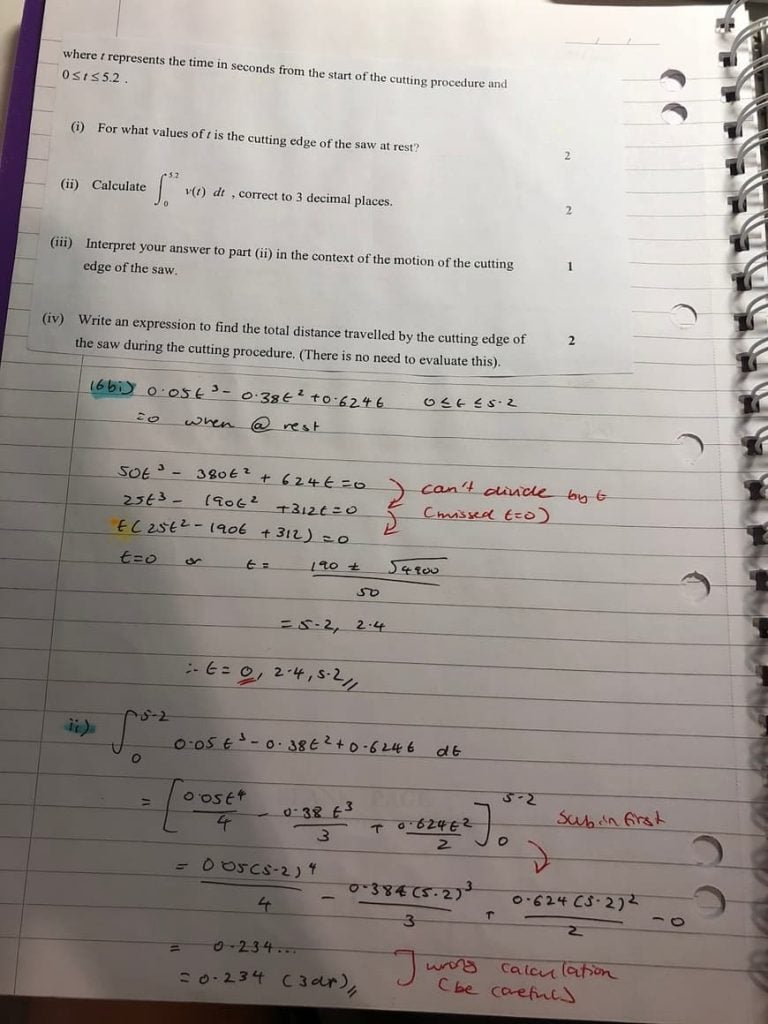 where t represents the time in seconds from the start of the cutting procedure and
0 ≤ t ≤ 5.2 .
(i) For what values of t is the cutting edge of the saw at rest?
2
(ii) Calculate ∫₀^5.2 v(t) dt , correct to 3 decimal places.
2
(iii) Interpret your answer to part (ii) in the context of the motion of the cutting
edge of the saw.
1
(iv) Write an expression to find the total distance travelled by the cutting edge of
the saw during the cutting procedure. (There is no need to evaluate this).
2
16bi) 0.05t³ - 0.38t² + 0.624t 0 ≤ t ≤ 5.2
=0 when @ rest
50t³ - 380t² + 624t = 0
can't divide by t
25t³ - 190t² + 312t = 0
(missed t=0)
t(25t² - 190t + 312) = 0
t=0 or t = 190 ± √4900 / 50
= 5.2, 2.4
∴ t = 0, 2.4, 5.2 //
ii) ∫₀^5.2 0.05t³ - 0.38t² + 0.624t dt
= [0.05t⁴/4 - 0.38t³/3 + 0.624t²/2]₀^5.2
Sub in first
= 0.05(5.2)⁴/4 - 0.38t(5.2)³/3 + 0.624(5.2)²/2 - 0
= 0.234...
= 0.234 (3dp) //
] wrong calculation
(be careful)